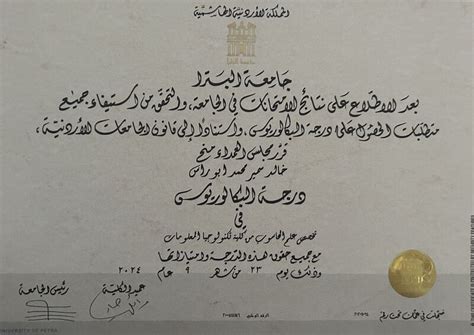 المملكة الأردنية الهاشمية
جامعة البترا
جامعة البترا
بعد الاطلاع على نتائج الامتحانات في الجامعة، والتحقق من استيفاء جميع
متطلبات الحصول على درجة البكالوريوس، واستناداً إلى قانون الجامعات الأردنية،
قرر مجلس العمداء منح
خالد سمير محمد ابو راس
درجة البكالوريوس
في
تخصص علم الحاسوب من كلية تكنولوجيا المعلومات
مع جميع حقوق هذه الدرجة وامتيازاتها
وذلك يوم ٢٣ من شهر ٩ عام ٢٠٢٤
عميد الكلية
رئيس الجامعة